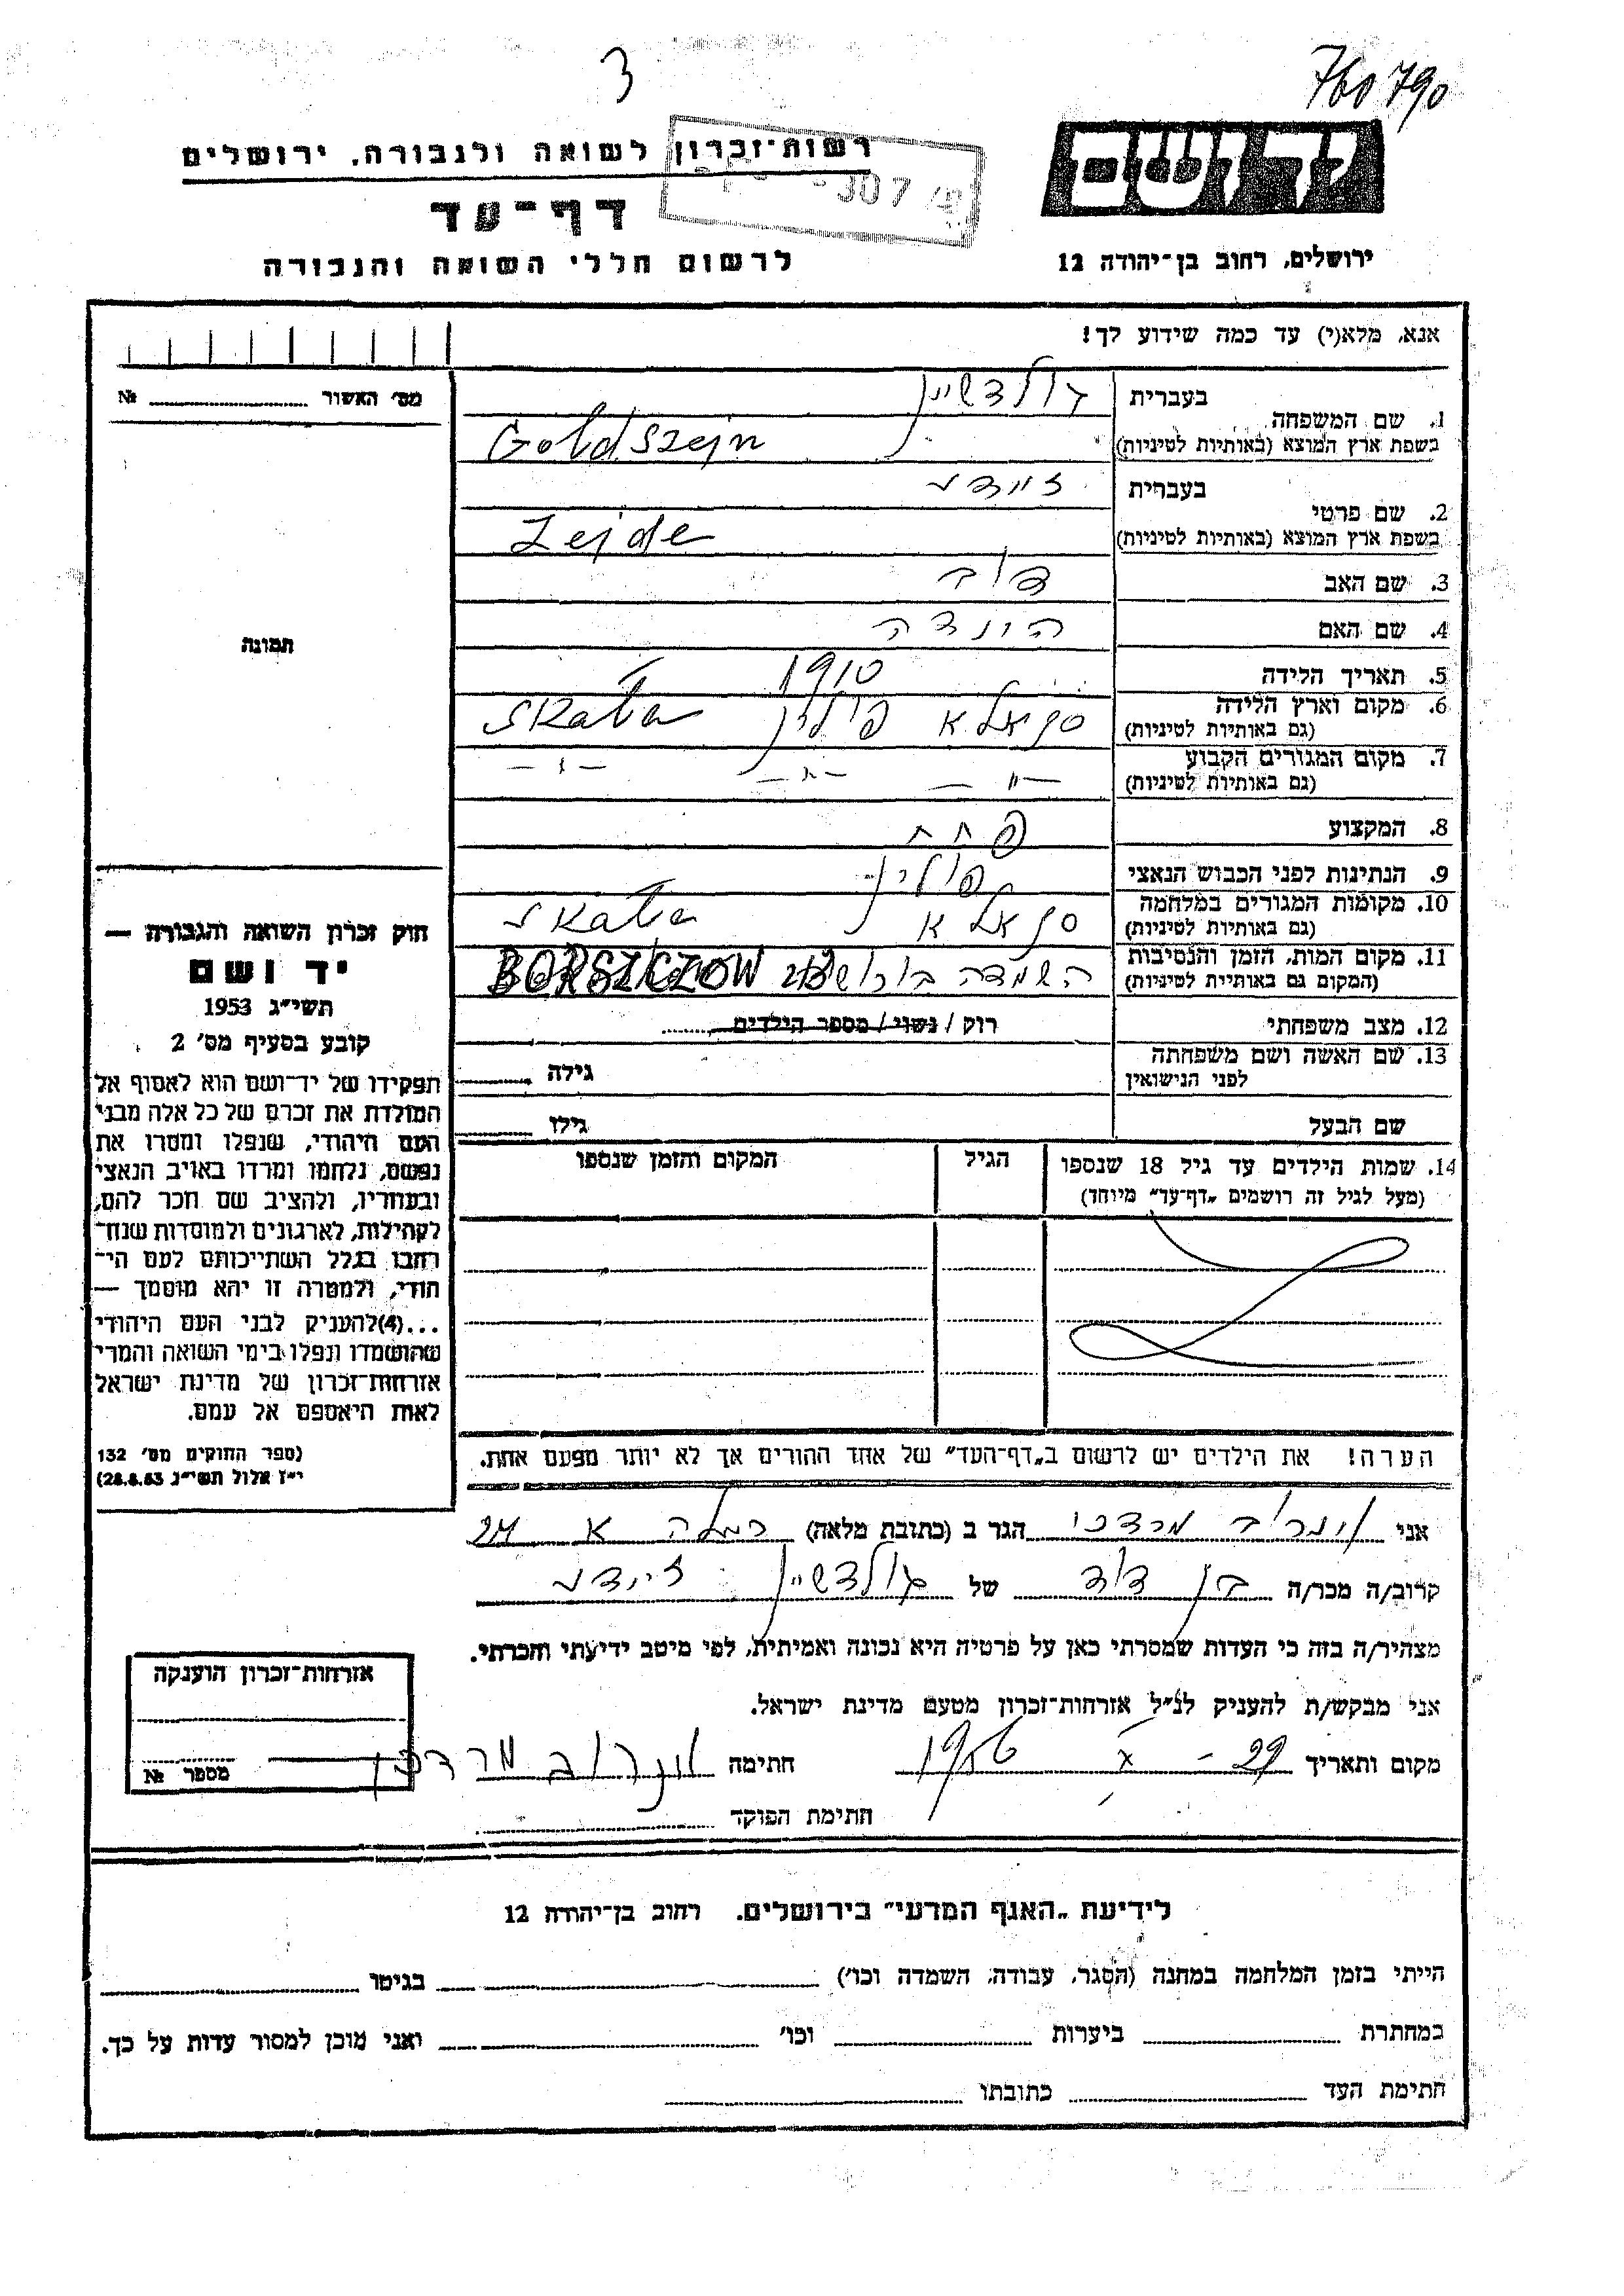 3
760790
רשות־זכרון לשואה ולגבורה, ירושלים
יד ושם
דף־עד
לרשום חללי השואה והגבורה
ירושלים, רחוב בן־יהודה 12
אנא, מלא(י) עד כמה שידוע לך!
מס׳ האשור № 
1. שם המשפחה
בעברית גולדשיין
בשפת ארץ המוצא (באותיות לטיניות) Goldszejn
2. שם פרטי
בעברית זיידע
בשפת ארץ המוצא (באותיות לטיניות) Zejde
3. שם האב דוב
4. שם האם הונדה
תמונה
5. תאריך הלידה 1910
6. מקום וארץ הלידה סקאלא פולין Skała
(גם באותיות לטיניות)
7. מקום המגורים הקבוע — " —
(גם באותיות לטיניות)
8. המקצוע פחח
9. הנתינות לפני הכבוש הנאצי פולין
10. מקומות המגורים במלחמה סקאלא Skała
(גם באותיות לטיניות)
11. מקום המות, הזמן והנסיבות השמדה BORSZCZOW
(המקום גם באותיות לטיניות)
12. מצב משפחתי רווק / נשוי / מספר הילדים
13. שם האשה ושם משפחתה
לפני הנישואין גילה
שם הבעל גילו
14. שמות הילדים עד גיל 18 שנספו הגיל המקום והזמן שנספו
(מעל לגיל זה רושמים „דף־עד" מיוחד)
חוק זכרון השואה והגבורה —
יד ושם
תשי״ג 1953
קובע בסעיף מס׳ 2
תפקידו של יד־ושם הוא לאסוף אל
המולדת את זכרם של כל אלה מבני
העם היהודי, שנפלו ומסרו את
נפשם, נלחמו ומרדו באויב הנאצי
ובעוזריו, ולהציב שם וזכר להם,
לקהילות, לארגונים ולמוסדות שנח־
רבו בגלל השתייכותם לעם הי־
הודי, ולמטרה זו יהא מוסמך —
...(4) להעניק לבני העם היהודי
שהושמדו ונפלו בימי השואה והמרי
אזרחות־זכרון של מדינת ישראל
לאות היאספם אל עמם.
(ספר החוקים מס׳ 132
י״ז אלול תשי״ג 28.8.53)
הערה! את הילדים יש לרשום ב„דף־העד" של אחד ההורים אך לא יותר מפעם אחת.
אני מרדכי הגר ב (כתובת מלאה) רמלה א
קרוב/ה מכר/ה בן דוד של גולדשיין זיידע
מצהיר/ה בזה כי העדות שמסרתי כאן על פרטיה היא נכונה ואמיתית, לפי מיטב ידיעתי והכרתי.
אני מבקש/ת להעניק לנ״ל אזרחות־זכרון מטעם מדינת ישראל.
מקום ותאריך 29 - X 1956 חתימה מרדכי
חתימת הפוקד
אזרחות־זכרון הוענקה
מספר №
לידיעת „האגף המדעי" בירושלים, רחוב בן־יהודה 12
הייתי בזמן המלחמה במחנה (הסגר, עבודה, השמדה וכו׳) בגיטו
במחתרת ביערות וכו׳ ואני מוכן למסור עדות על כך.
חתימת העד כתובתו